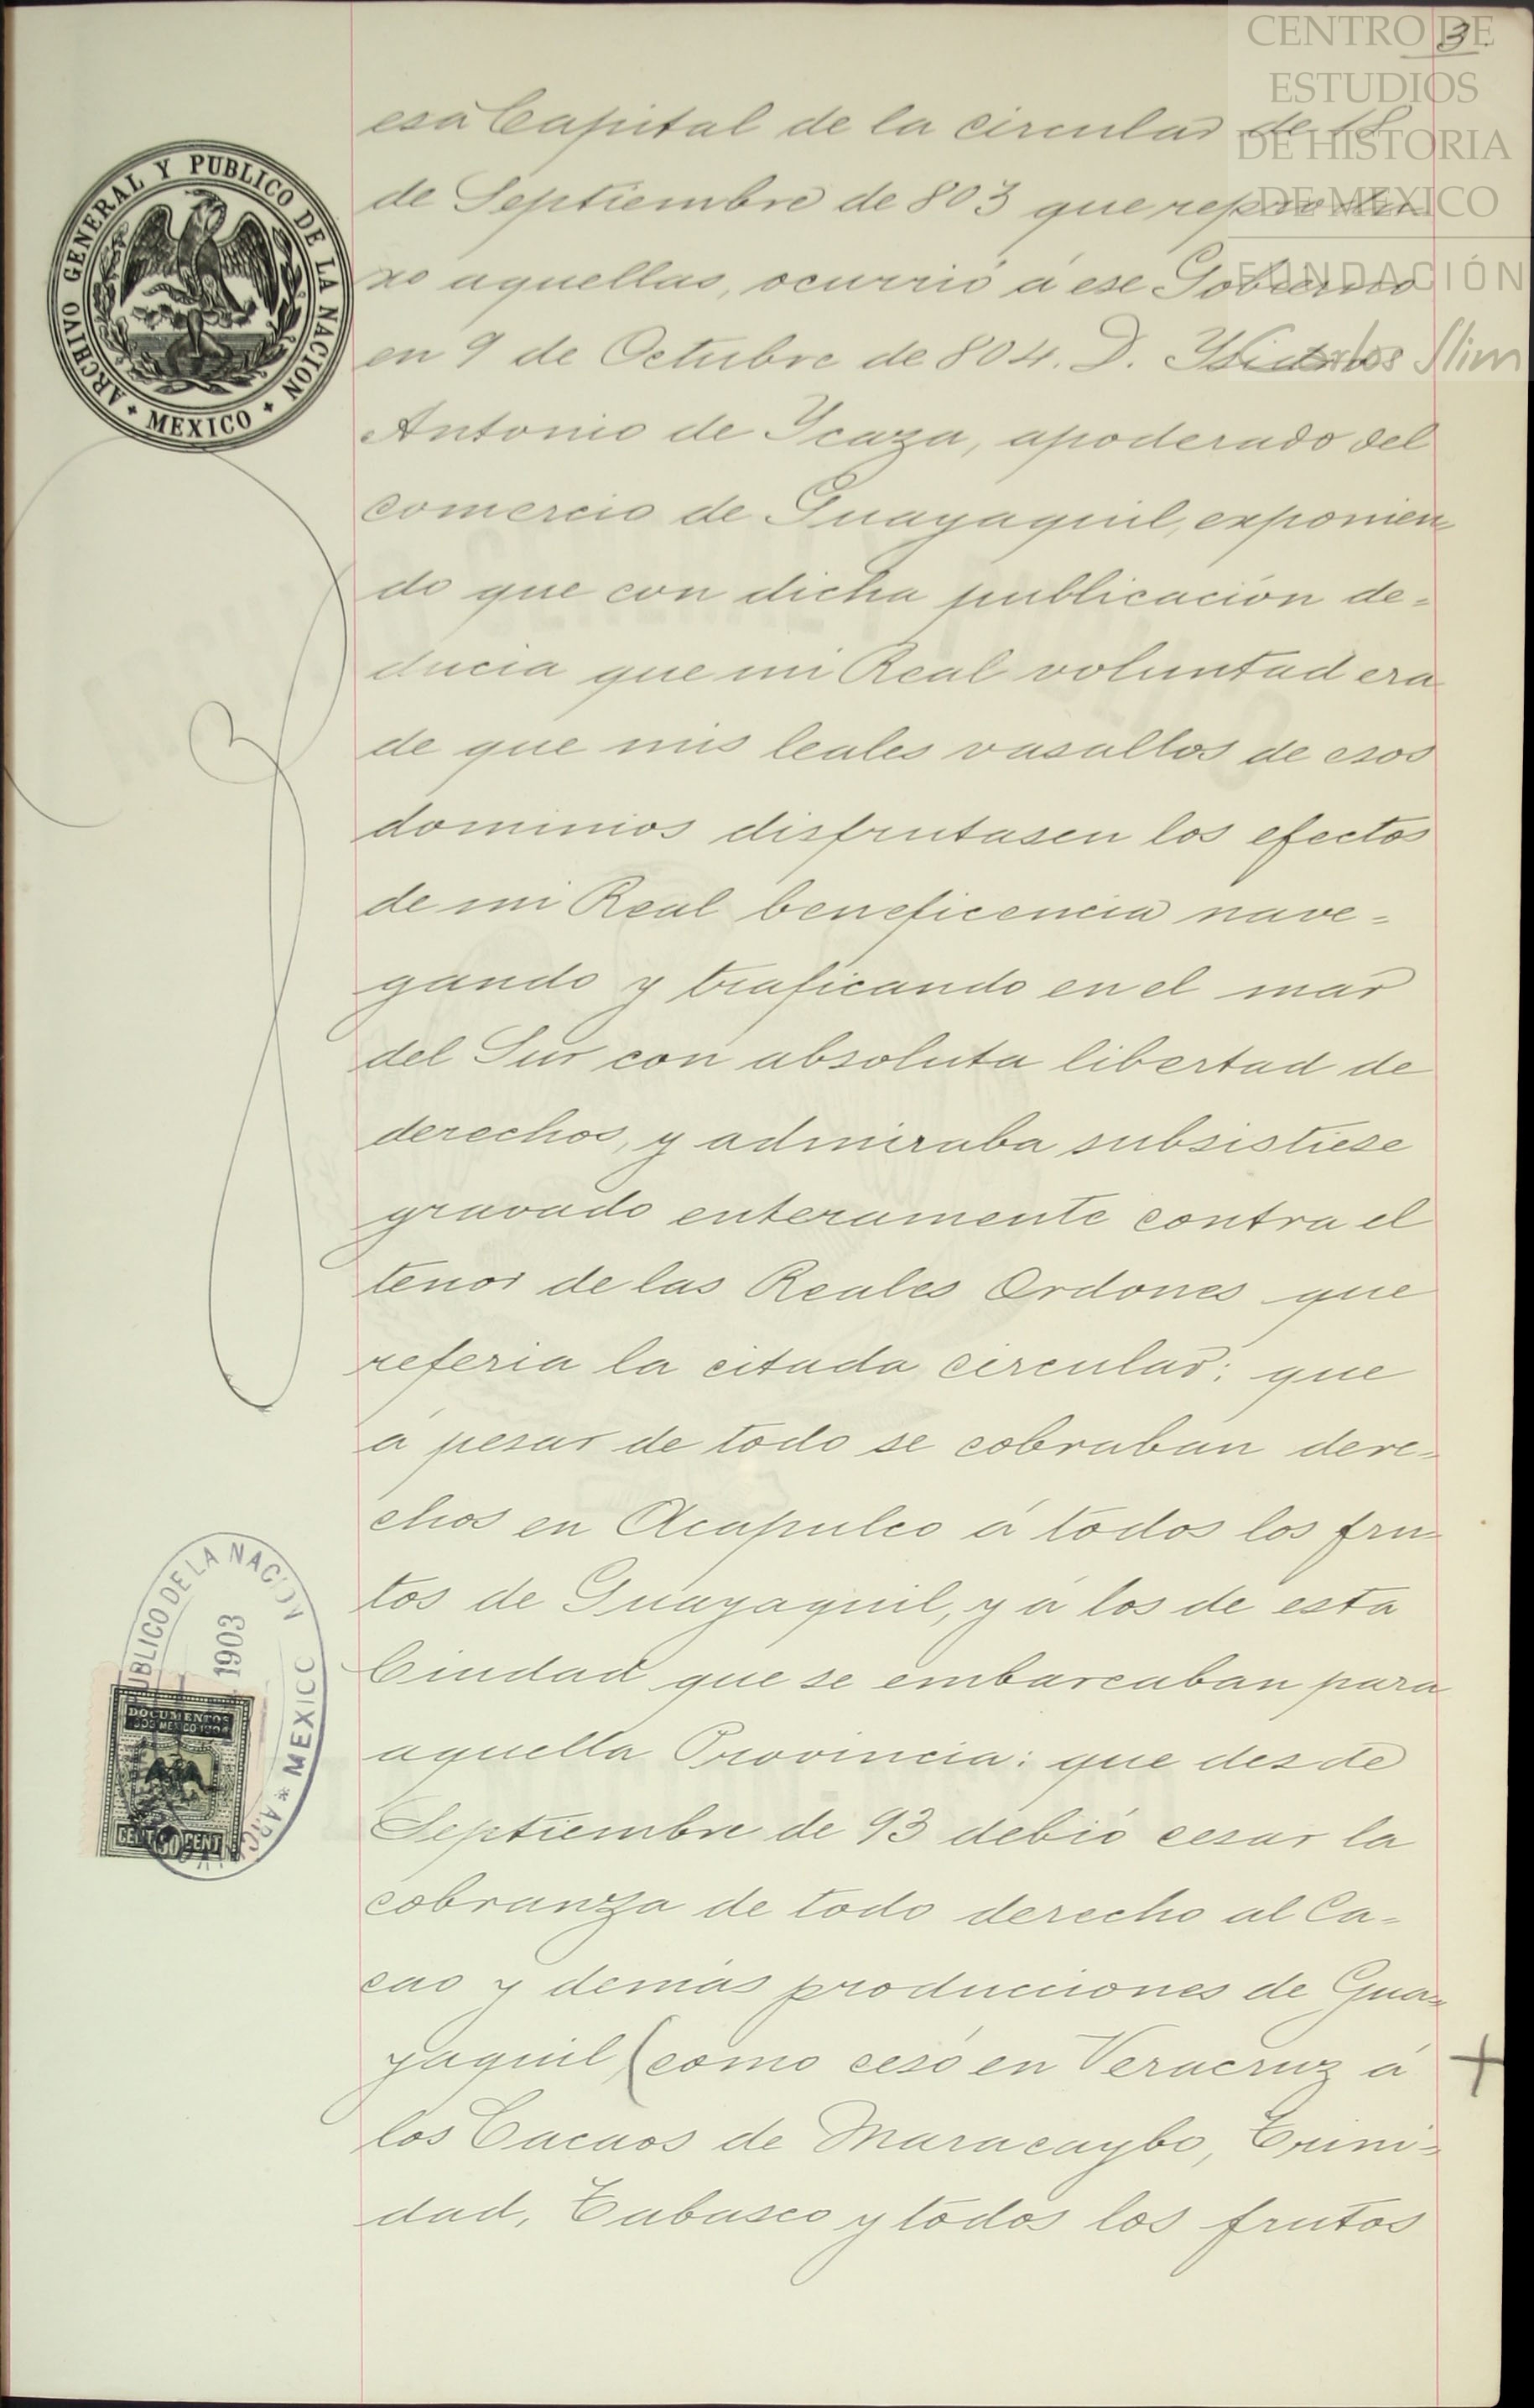 CENTRO DE
ESTUDIOS
DE HISTORIA
DE MEXICO
FUNDACIÓN
Carlos Slim
3.
ARCHIVO GENERAL Y PUBLICO DE LA NACION
MEXICO
esa Capital de la circular de 18
de Septiembre de 803 que reprodu-
xo aquellas, ocurrió á ese Gobierno
en 9 de Octubre de 804. D. Ysidro
Antonio de Ycaza, apoderado del
comercio de Guayaquil, exponien-
do que con dicha publicación de=
ducia que mi Real voluntad era
de que mis leales vasallos de esos
dominios disfrutasen los efectos
de mi Real beneficencia nave=
gando y traficando en el mar
del Sur con absoluta libertad de
derechos, y admiraba subsistiese
gravado enteramente contra el
tenor de las Reales Ordones que
referia la citada circular: que
á pesar de todo se cobraban dere=
chos en Acapulco á todos los fru-
tos de Guayaquil, y á los de esta
Ciudad que se embarcaban para
aquella Provincia: que desde
Septiembre de 93 debió cesar la
cobranza de todo derecho al Ca=
cao y demás producciones de Gua=
yaquil (como cesó en Veracruz á
los Cacaos de Maracaybo, Trini=
dad, Tabasco y todos los frutos
PUBLICO DE LA NACION
1903
MEXICO
DOCUMENTOS
50 CENT